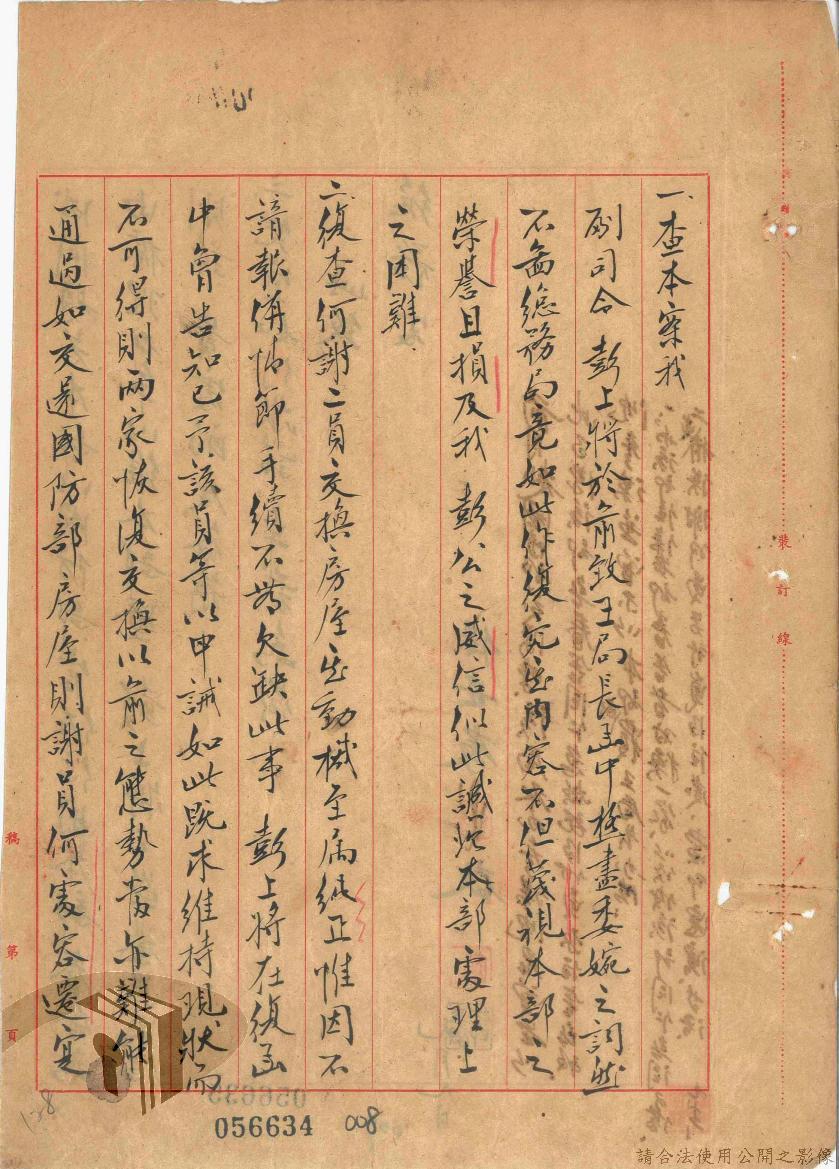 一、查本案我
副司令 彭上將於前致王局長函中極盡委婉之詞然
不啻總務局竟如此作復究其內容不但蔑視本部之
榮譽且損及我 彭公之威信似此誠貽本部處理上
之困難
二、復查何謝二員交換房屋其動機至屬純正惟因不
諳報備怗節手續不蒂欠缺此事 彭上將在復函
中曾告知已予該員等以申誡如此既求維持現狀而
不可得則兩家恢復交換以前之態勢當亦難能
通過如交還國防部房屋則謝員何處容遷宜
裝訂線
稿 第 頁
056634 008
138
請合法使用公開之影像